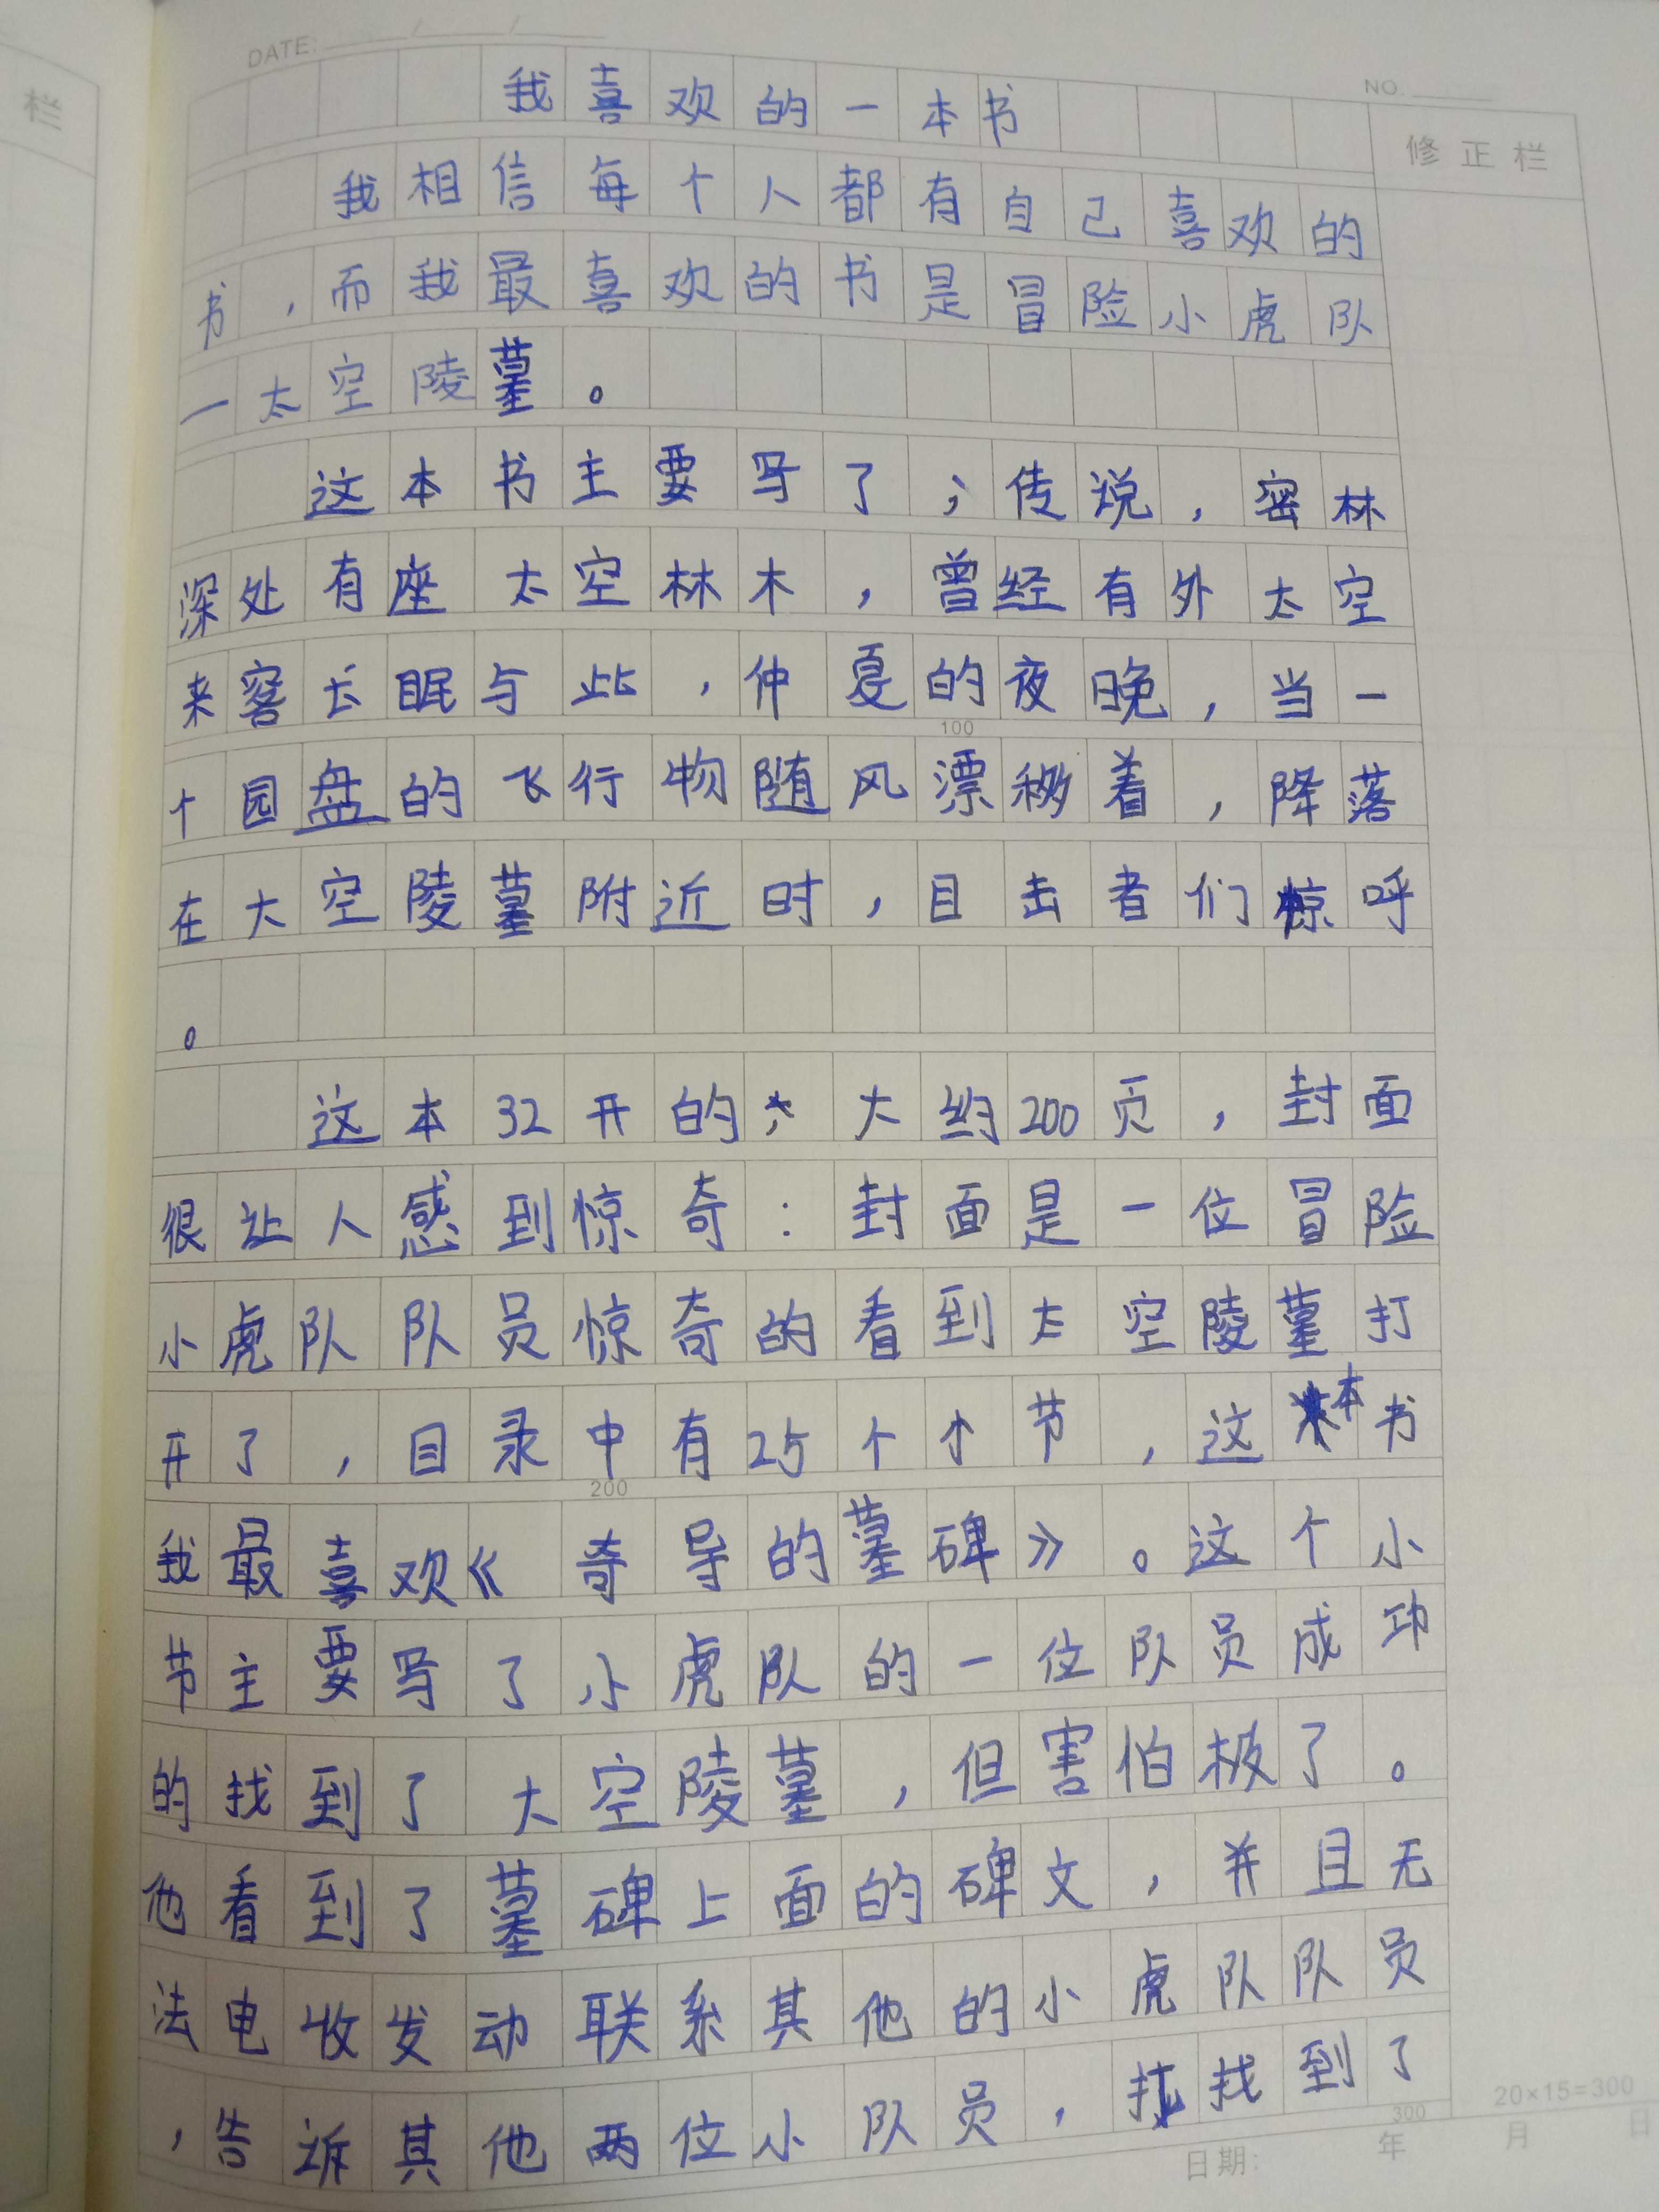 栏
DATE: ____/____/____
NO. ____
修正栏
我喜欢的一本书
我相信每个人都有自己喜欢的
书，而我最喜欢的书是冒险小虎队
一太空陵墓。
这本书主要写了；传说，密林
深处有座太空林木，曾经有外太空
来客长眠与此，仲夏的夜晚，当一
100
个园盘的飞行物随风漂移着，降落
在大空陵墓附近时，目击者们惊呼
。
这本32开的，大约200页，封面
很让人感到惊奇：封面是一位冒险
小虎队队员惊奇的看到太空陵墓打
开了，目录中有25个小节，这本书
200
我最喜欢《奇导的墓碑》。这个小
节主要写了小虎队的一位队员成功
的找到了大空陵墓，但害怕极了。
他看到了墓碑上面的碑文，并且无
法电收发动联系其他的小虎队队员
，告诉其他两位小队员，找找到了
300
20×15=300
日期: 年 月 日